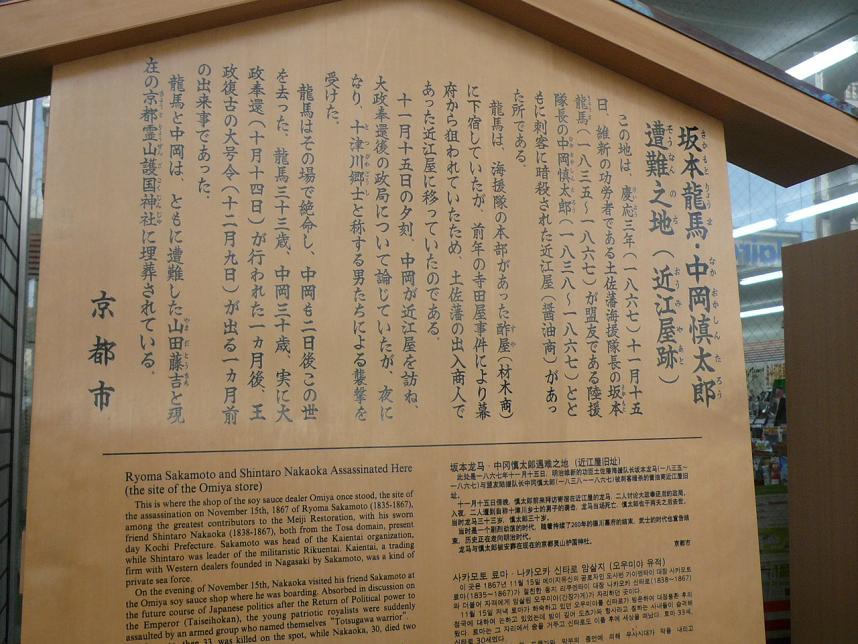 坂本龍馬・中岡慎太郎
遭難之地（近江屋跡）
この地は、慶応三年（一八六七）十一月十五
日、維新の功労者である土佐藩海援隊長の坂本
龍馬（一八三五～一八六七）が盟友である陸援
隊長の中岡慎太郎（一八三八～一八六七）とと
もに刺客に暗殺された近江屋（醤油商）があっ
た所である。
龍馬は、海援隊の本部があった酢屋（材木商）
に下宿していたが、前年の寺田屋事件により幕
府から狙われていたため、土佐藩の出入商人で
あった近江屋に移っていたのである。
十一月十五日の夕刻、中岡が近江屋を訪ね、
大政奉還後の政局について論じていたが、夜に
なり、十津川郷士と称する男たちによる襲撃を
受けた。
龍馬はその場で絶命し、中岡も二日後この世
を去った。龍馬三十三歳、中岡三十歳、実に大
政奉還（十月十四日）が行われた一ヵ月後、王
政復古の大号令（十二月九日）が出る一ヵ月前
の出来事であった。
龍馬と中岡は、ともに遭難した山田藤吉と現
在の京都霊山護国神社に埋葬されている。
京都市
Ryoma Sakamoto and Shintaro Nakaoka Assassinated Here
(the site of the Omiya store)
This is where the shop of the soy sauce dealer Omiya once stood, the site of
the assassination on November 15th, 1867 of Ryoma Sakamoto (1835-1867),
among the greatest contributors to the Meiji Restoration, with his sworn
friend Shintaro Nakaoka (1838-1867), both from the Tosa domain, present
day Kochi Prefecture. Sakamoto was head of the Kaientai organization,
while Shintaro was leader of the militaristic Rikuentai. Kaientai, a trading
firm with Western dealers founded in Nagasaki by Sakamoto, was a kind of
private sea force.
On the evening of November 15th, Nakaoka visited his friend Sakamoto at
the Omiya soy sauce shop where he was boarding. Absorbed in discussion on
the future course of Japanese politics after the Return of Political power to
the Emperor (Taiseihokan), the young patriotic royalists were suddenly
assaulted by an armed group who named themselves "Totsugawa warrior"
then 33, was killed on the spot, while Nakaoka, 30, died two
坂本龙马・中冈慎太郎遇难之地（近江屋旧址）
此处是一八六七年十一月十五日，明治维新的功臣土佐海援队长坂本龙马(一八三五～
一八六七)与盟友陆援队长中冈慎太郎(一八三八～一八六七)被刺客暗杀的酱油商近江屋旧
址。
十一月十五日傍晚，慎太郎前来拜访寄宿在近江屋的龙马，二人讨论大政奉还后的政局。
当时龙马三十三岁，慎太郎三十岁。
龙马与慎太郎被安葬在现在的京都灵山护国神社。
京都市
사카모토 료마・나카오카 신타로 암살지 (오우미야 유적)